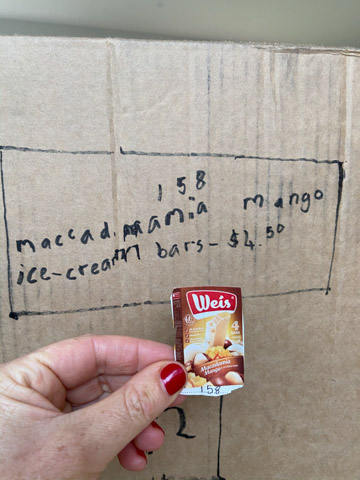 158
maccadamamia mango
ice-cream bars - $4.50
Weis
4
Macadamia
Mango
158
2